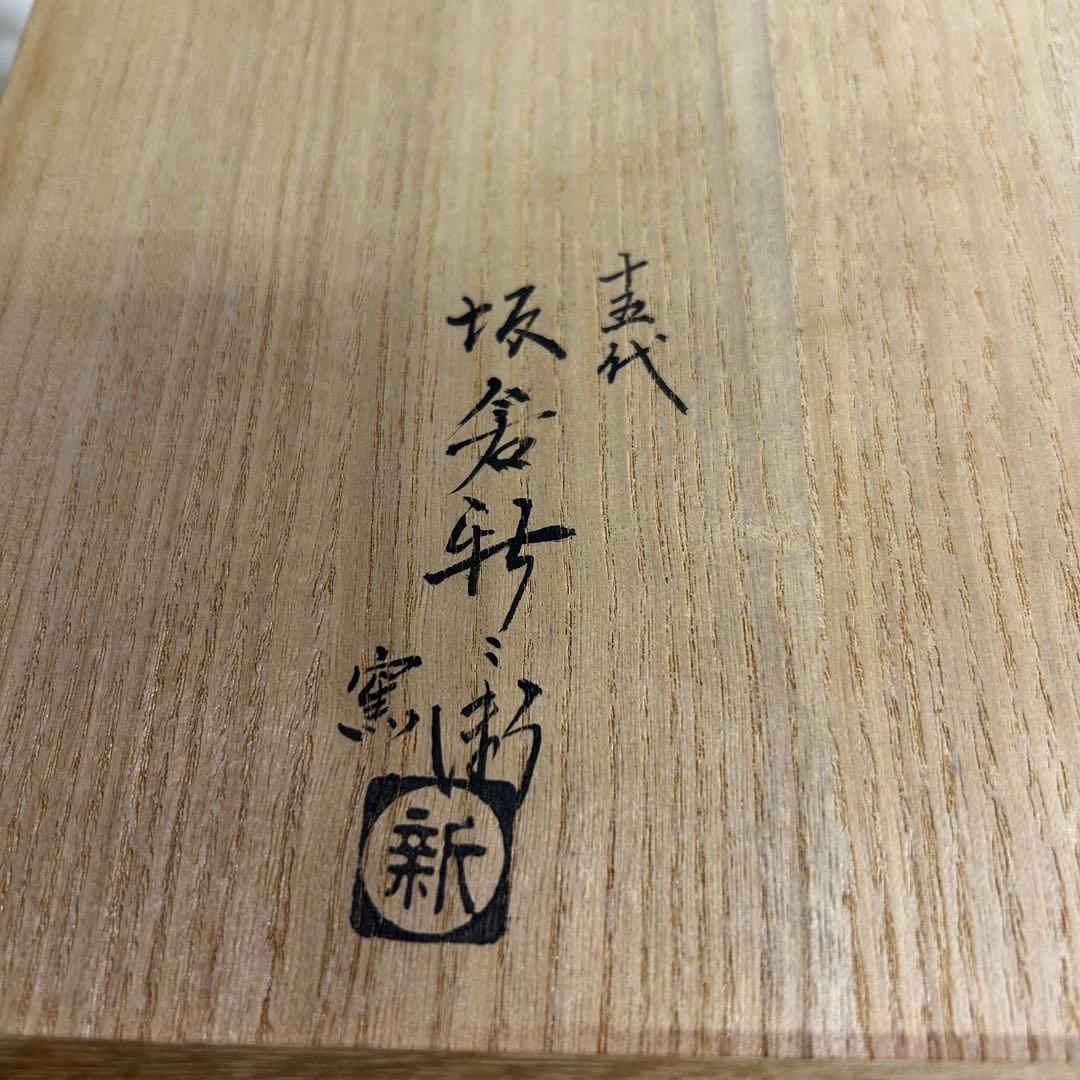 十五代
坂倉新兵衛
窯
新